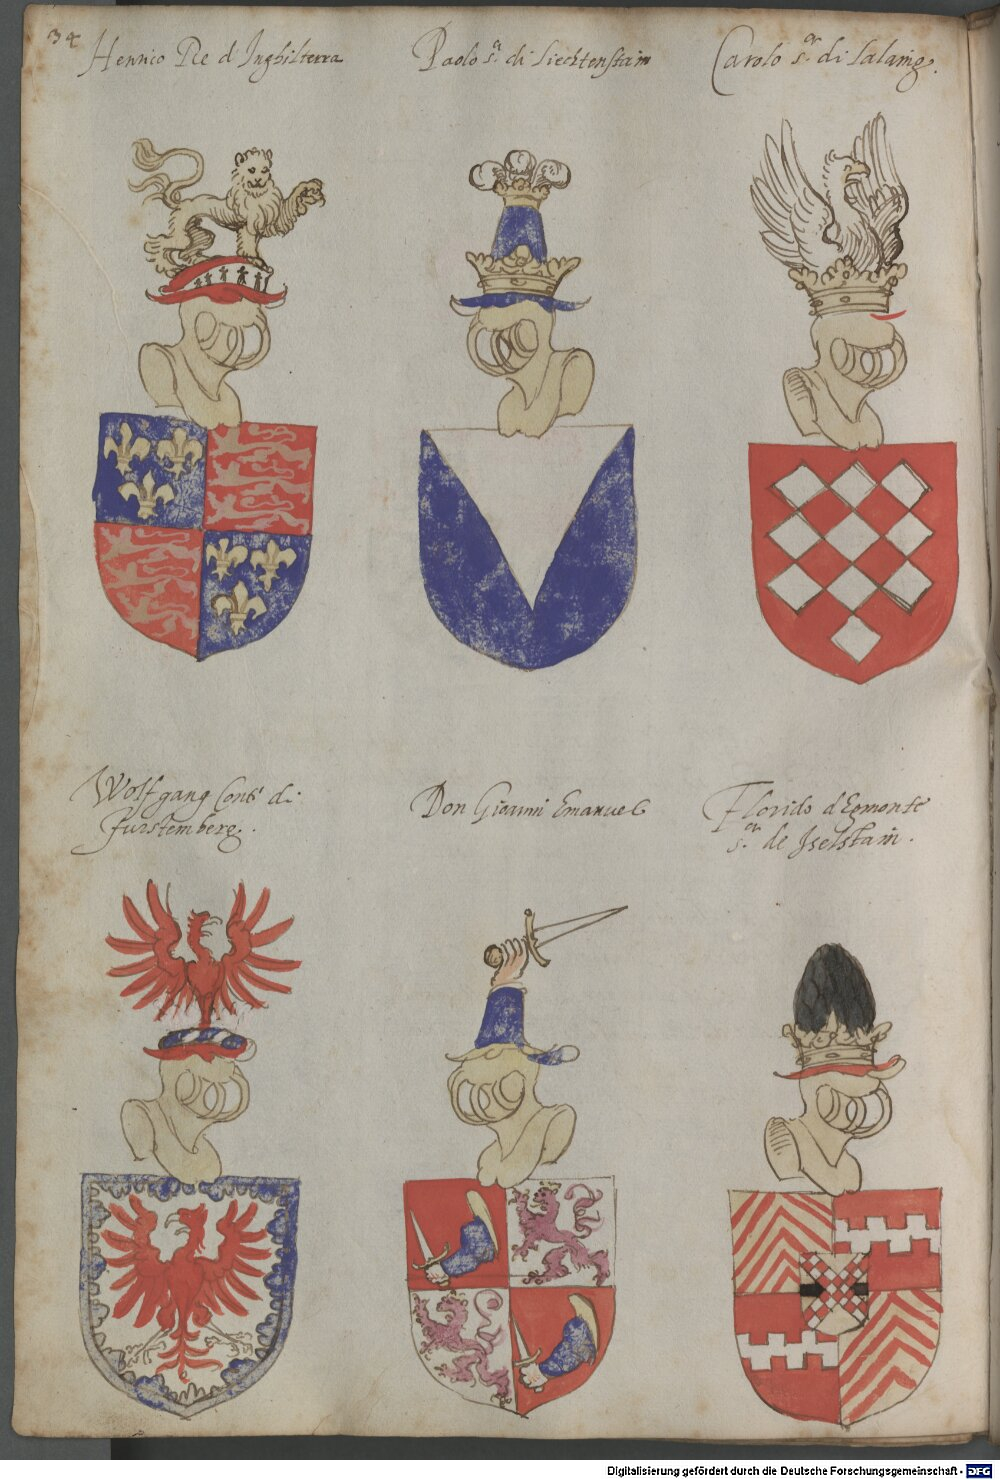 34
Henrico Re d'Inghilterra
Paolo s.ʳ di Liechtenstain
Carolo s.ᵒʳ di Lalaing.
Wolfgang Conte di
furstemberg.
Don Giovanni Emanuel
Florido d'Egmonte
s.ᵒʳ de Iselstain.
Digitalisierung gefördert durch die Deutsche Forschungsgemeinschaft - DFG